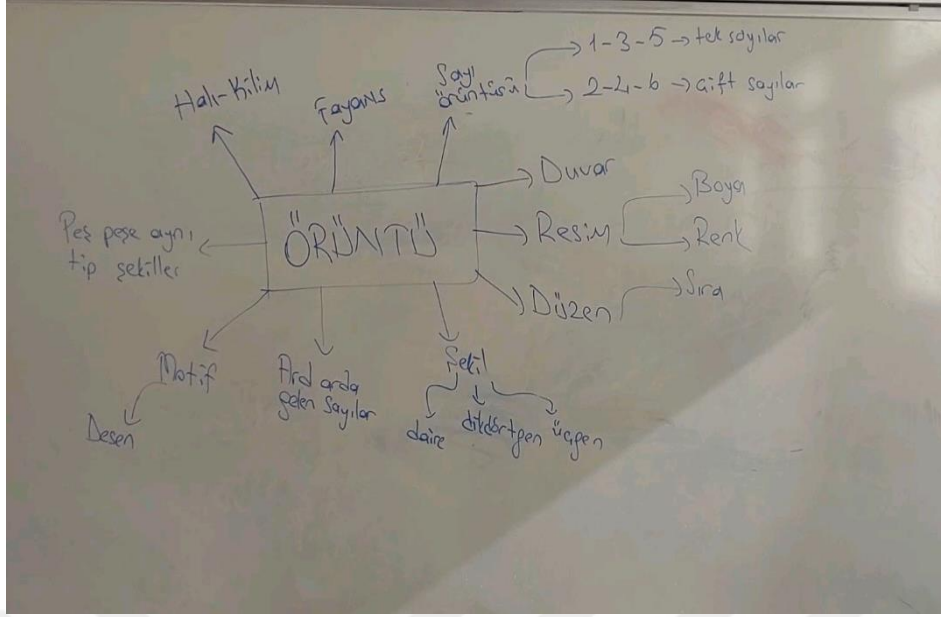 Halı-Kilim
Fayans
Sayı
örüntüsü
1-3-5 → tek sayılar
2-4-6 → çift sayılar
Duvar
ÖRÜNTÜ
Resim
Boya
Renk
Peş peşe aynı
tip şekiller
Düzen
Sıra
Motif
Desen
Ard arda
gelen sayılar
Şekil
daire
dikdörtgen
üçgen